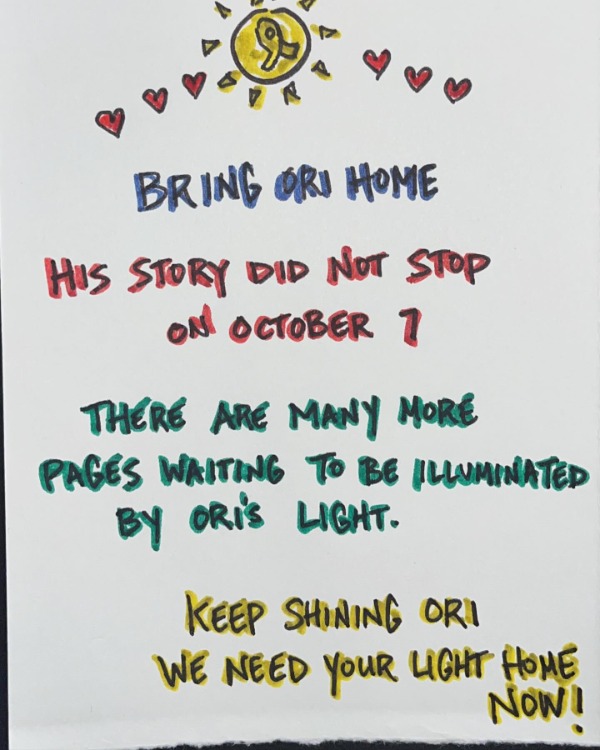 BRING ORI HOME
HIS STORY DID NOT STOP
ON OCTOBER 7
THERE ARE MANY MORE
PAGES WAITING TO BE ILLUMINATED
BY ORI'S LIGHT.
KEEP SHINING ORI
WE NEED YOUR LIGHT HOME
NOW!